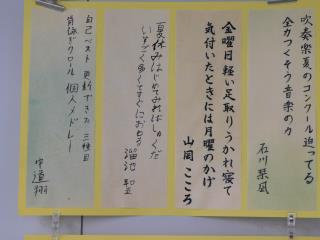 吹奏楽夏のコンクール迫ってる
全力つくそう音楽の力
石川琴凪
金曜日軽い足取りうかれ寝て
気付いたときには月曜のかげ
山岡こころ
夏休みはじめてみればしゅくだ
いすごく多くてすぐにおわる
溜池
自己ベスト更新できた三種目
背泳ぎクロール個人メドレー
中道翔